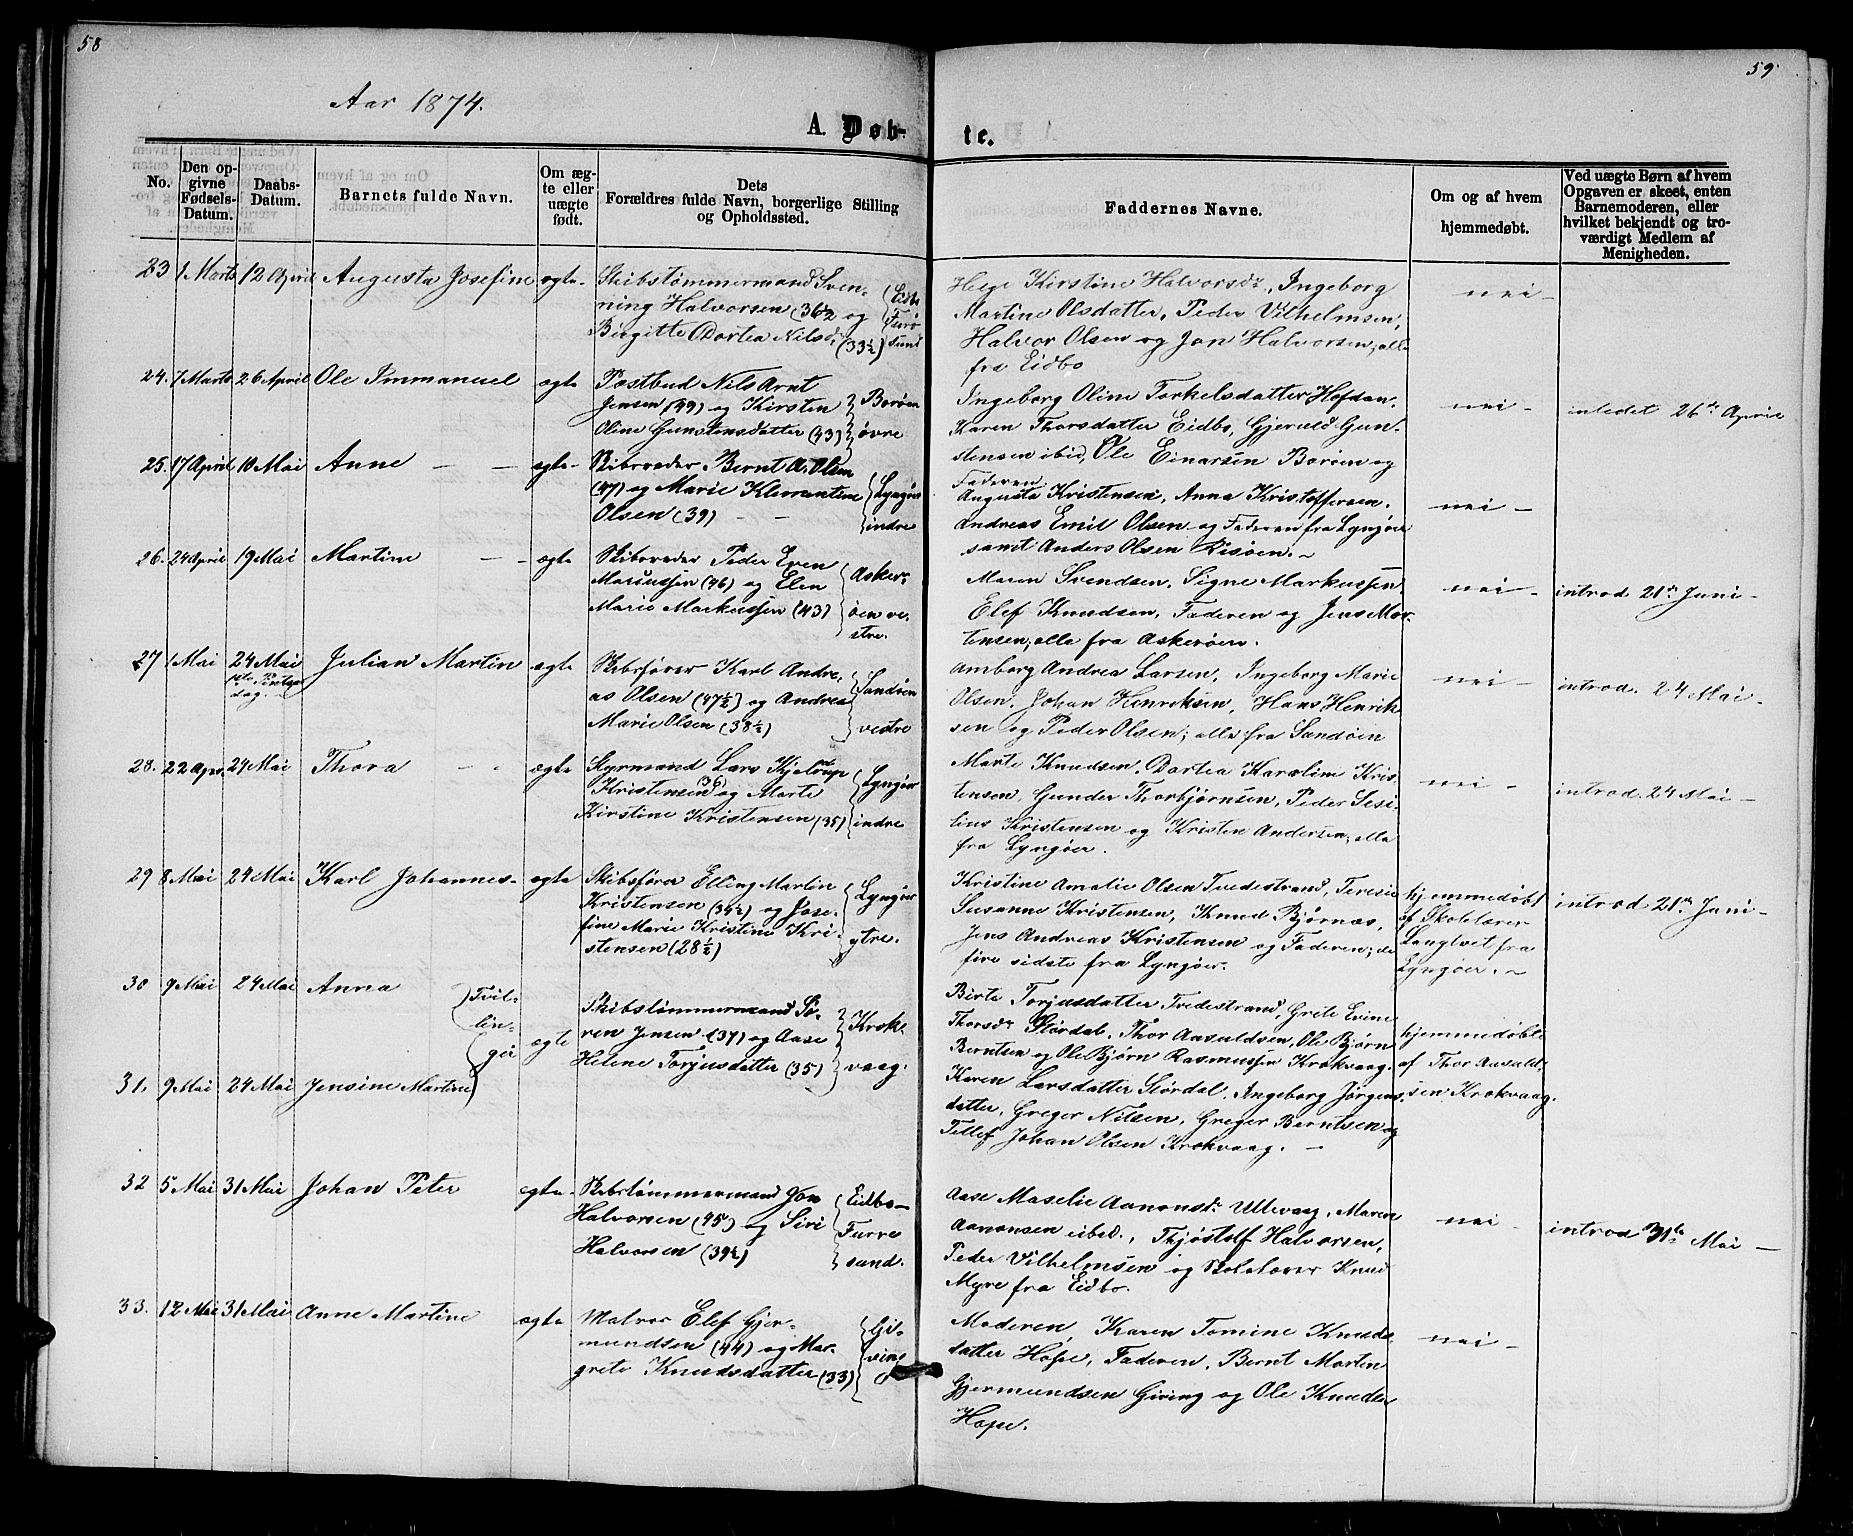 58
59
Aar 1874.
A. Døb-
te.
No.
Den op-
givne
Fødsels-
Datum.
Daabs-
Datum.
Barnets fulde Navn.
Om æg-
te eller
uægte
født.
Dets
Forældres fulde Navn, borgerlige Stilling
og Opholdssted.
Faddernes Navne.
Om og af hvem
hjemmedøbt.
Ved uægte Børn af hvem
Opgaven er skeet, enten
Barnemoderen, eller
hvilket bekjendt og tro-
værdigt Medlem af
Menigheden.
23 1 Marts 12 April Augusta Josefine ægte-
Skibstømmermand Sven-
ning Halvorsen (36½ og
Birgitte Dortea Nilsd. (33½)
Eidbo
Furø
sund
Hege Kirstine Halvorsdr, Ingeborg
Martine Olsdatter, Peder Vilhelmsen,
Halvor Olsen og Jon Halvorsen, alle
fra Eidbo
nei -
24. 7 Marts 26 April Ole Immanuel ægte
Postbud Nils Arnt
Jensen (49) og Kirsten
Oline Gunstensdatter (43)
Borøen
øvre
Ingeborg Oline Torkelsdatter Hofdan,
Karen Thorsdatter Eidbo, Gjeruld Gun-
stensen ibid, Ole Einarsen Borøen og
Faderen
nei -
inledet 26de April
25. 17 April 10 Mai Anne - - ægte-
Skibsreder Bernt A. Olsen
(47) og Marie Klementine
Olsen (39) - -
Lyngør
indre
Augusta Kristensen, Anna Kristoffersen,
Andreas Emil Olsen og Faderen fra Lyngøer
samt Anders Olsen Risøen. -
nei -
26. 24 April 19 Mai Martine - - ægte
Skibsreder Peder Even
Mariussen (46) og Elen
Marie Markussen (43)
Asker-
øen ve-
stre.
Maren Svendsen, Signe Markussen,
Elef Knudsen, Faderen og Jens Mor-
tensen, alle fra Askerøen.
nei -
introd 21de Juni -
27 1 Mai 24 Mai Julian Martin ægte
1ste Pintse
dag. -
Skibsfører Karl Andre-
as Olsen (47½) og Andrea
Marie Olsen (38½)
Sandøen
vestre
Amborg Andrea Larsen, Ingeborg Marie
Olsen, Johan Henriksen, Hans Henrik-
sen og Peder Olsen; alle fra Sandøen
nei -
introd. 24 Mai -
28. 22 Apr. 24 Mai Thora - - ægte
Styrmand Lars Kjelrup
Kristensen (36) og Marte
Kirstine Kristensen (35)
Lyngør
indre
Marte Knudsen, Dortea Karoline Kris-
tensen, Gunder Thorbjørnsen, Peder Sesi-
lius Kristensen og Kristen Andersen, alle
fra Lyngøer.
nei -
introd. 24 Mai -
29 8 Mai 24 Mai Karl Johannes- ægte
Skibsfører Elling Martin
Kristensen (34½) og Jose-
fine Marie Kristine Kri-
stensen (28½)
Lyngør
ytre.
Kristine Amalie Olsen Tvedestrand, Teresie
Susanne Kristensen, Knud Bjørnaas,
Jens Andreas Kristensen og Faderen; de
fire sidste fra Lyngøer.
hjemmedøbt
af Skolelærer
Langtvet fra
Lyngøer. -
introd 21de Juni -
30 9 Mai 24 Mai Anna
Tvil-
lin-
ger
ægte
Skibstømmermand Sø-
ren Jensen (37) og Aase
Helene Torjusdatter (35)
Krok-
vaag.
Birte Torjusdatter Tvedestrand, Grete Evine
Thorsdr Størdal, Thor Aasuldsen, Ole Bjørn
Berntsen og Ole Bjørn Rasmussen Krokvaag.
hjemmedøbte
af Thor Aasuld-
sen Krokvaag.
31. 9 Mai 24 Mai Jensine Martine
Karen Larsdatter Størdal, Ingeborg Jørgens-
datter, Greger Nilsen, Greger Berntsen og
Tellef Johan Olsen Krokvaag. -
32 5 Mai 31 Mai Johan Peter ægte-
Skibstømmermand Jon
Halvorsen (45) og Siri
Halvorsen (39½)
Eidbo-
Furre
sund.
Aase Maselie Aanonsdr Ulevaag, Maren
Aanonsen ibid., Thjøstolf Halvorsen,
Peder Vilhelmsen og Skolelærer Knud
Myre fra Eidbo.
nei -
introd 31te Mai -
33. 12 Mai 31 Mai Anne Martine ægte
Matros Elef Gjer-
mundsen (44) og Mar-
grete Knudsdatter (33)
Gji-
ving
Moderen, Karen Tomine Knuds-
datter Hope, Faderen, Bernt Martin
Gjermundsen Giving og Ole Knudsen
Hope.
nei -